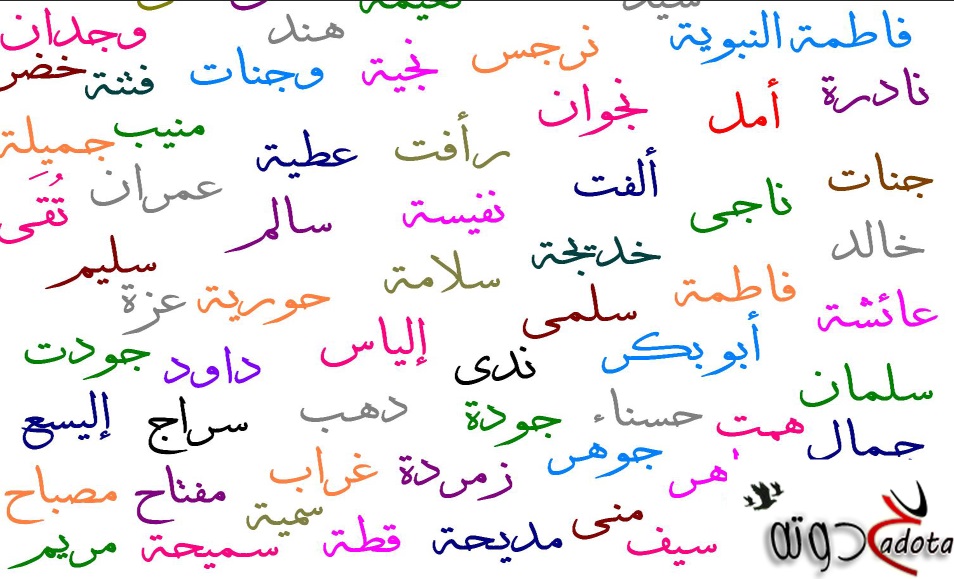 نعيمة سيد
فاطمة النبوية نرجس هند وجدان
نادرة نجية وجنات فتنة خضر
أمل نجوان
منيب جميلة
جنات ألفت رأفت عطية عمران تُقَى
ناجى نفيسة سالم
خالد خديجة سليم
عائشة فاطمة سلمى سلامة حورية عزة
أبو بكر ندى إلياس داود جودت
سلمان
جمال همت حسناء جودة دهب سراج إليسع
جوهر زمردة غراب مفتاح مصباح
منى سمية
سيف مديحة قطة سميحة مريم
حدوته
adota